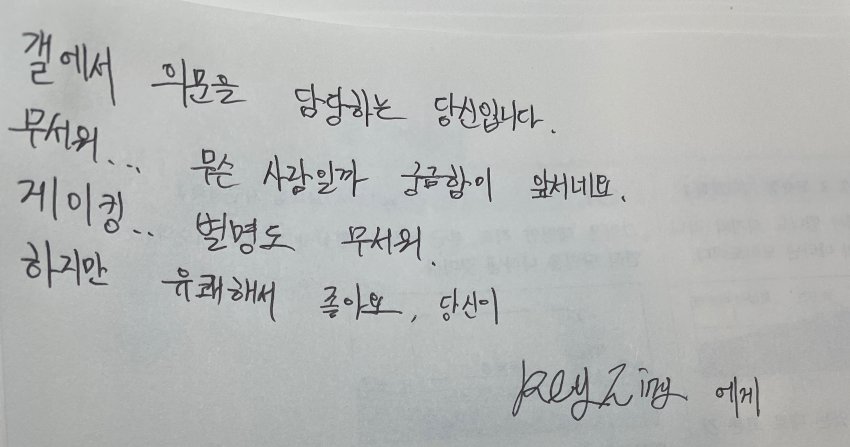 갤에서 의문을 담당하는 당신입니다.
무서워... 무슨 사람일까 궁금함이 앞서네요.
게이킹.. 별명도 무서워.
하지만 유쾌해서 좋아요, 당신이
KeyZing 에게